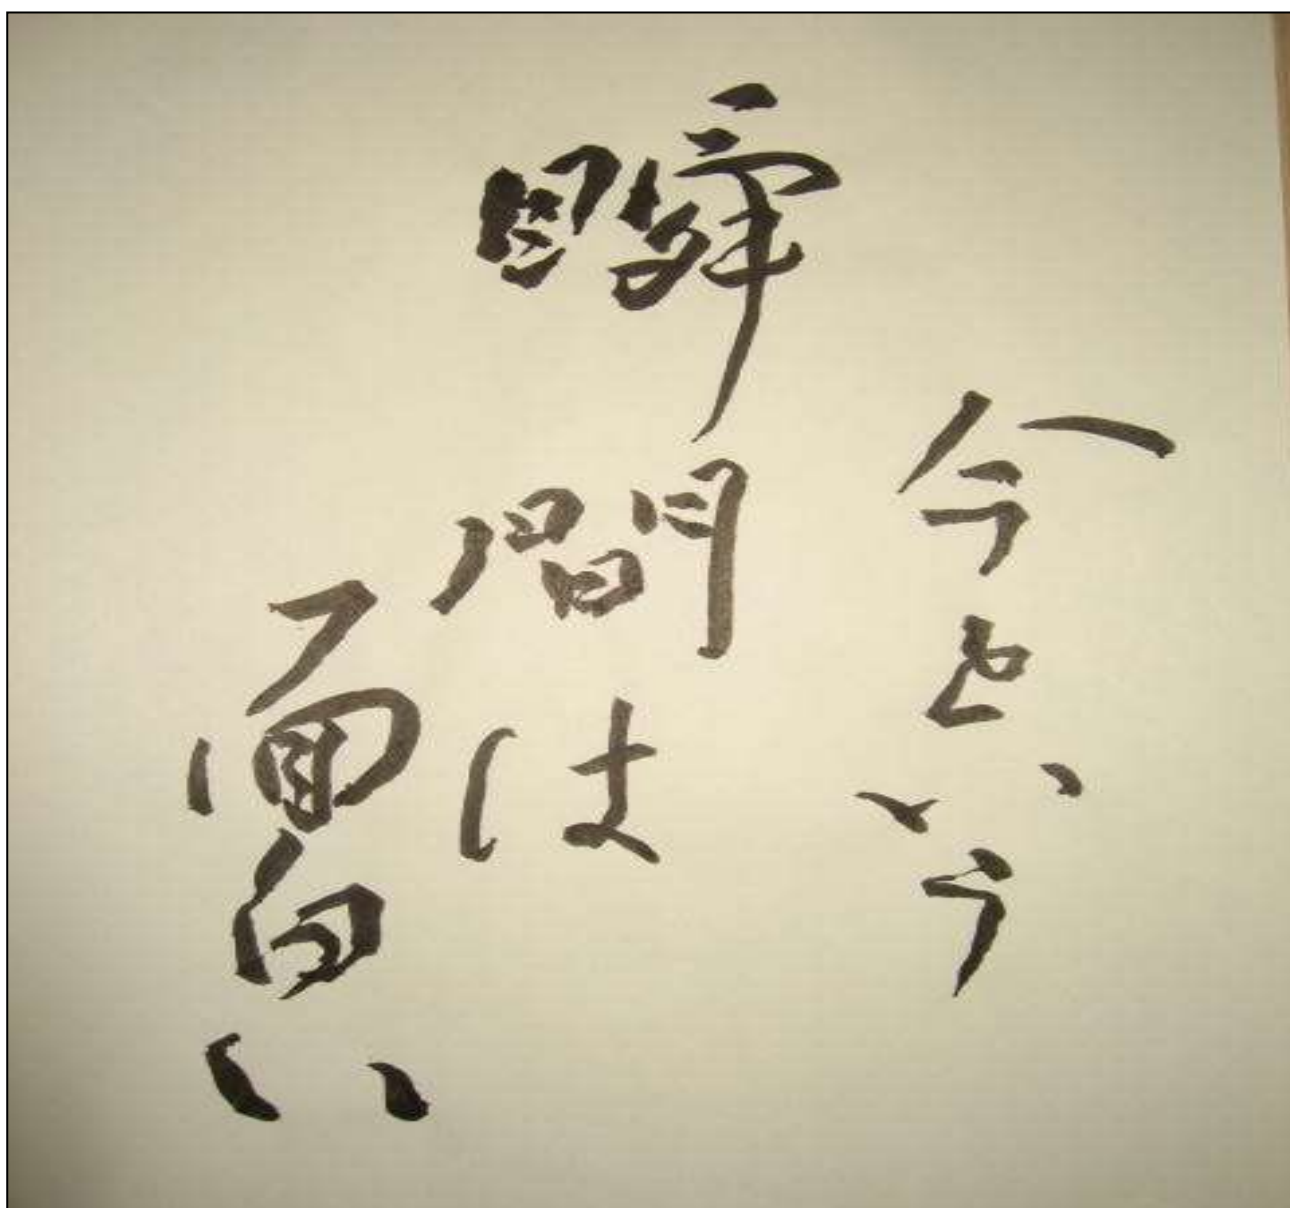 今という
瞬間は
面白い